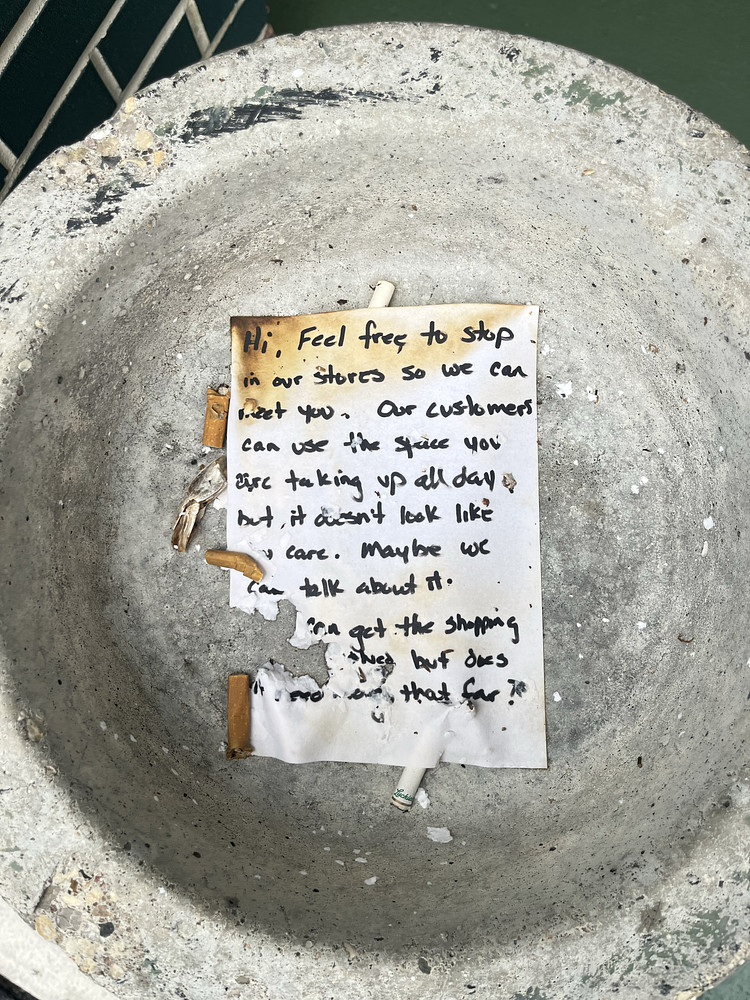 Hi, Feel free to stop
in our stores so we can
meet you. Our customers
can use the space you
are taking up all day
but, it doesn't look like
care. Maybe we
can talk about it.
get the shopping
but does
that far?